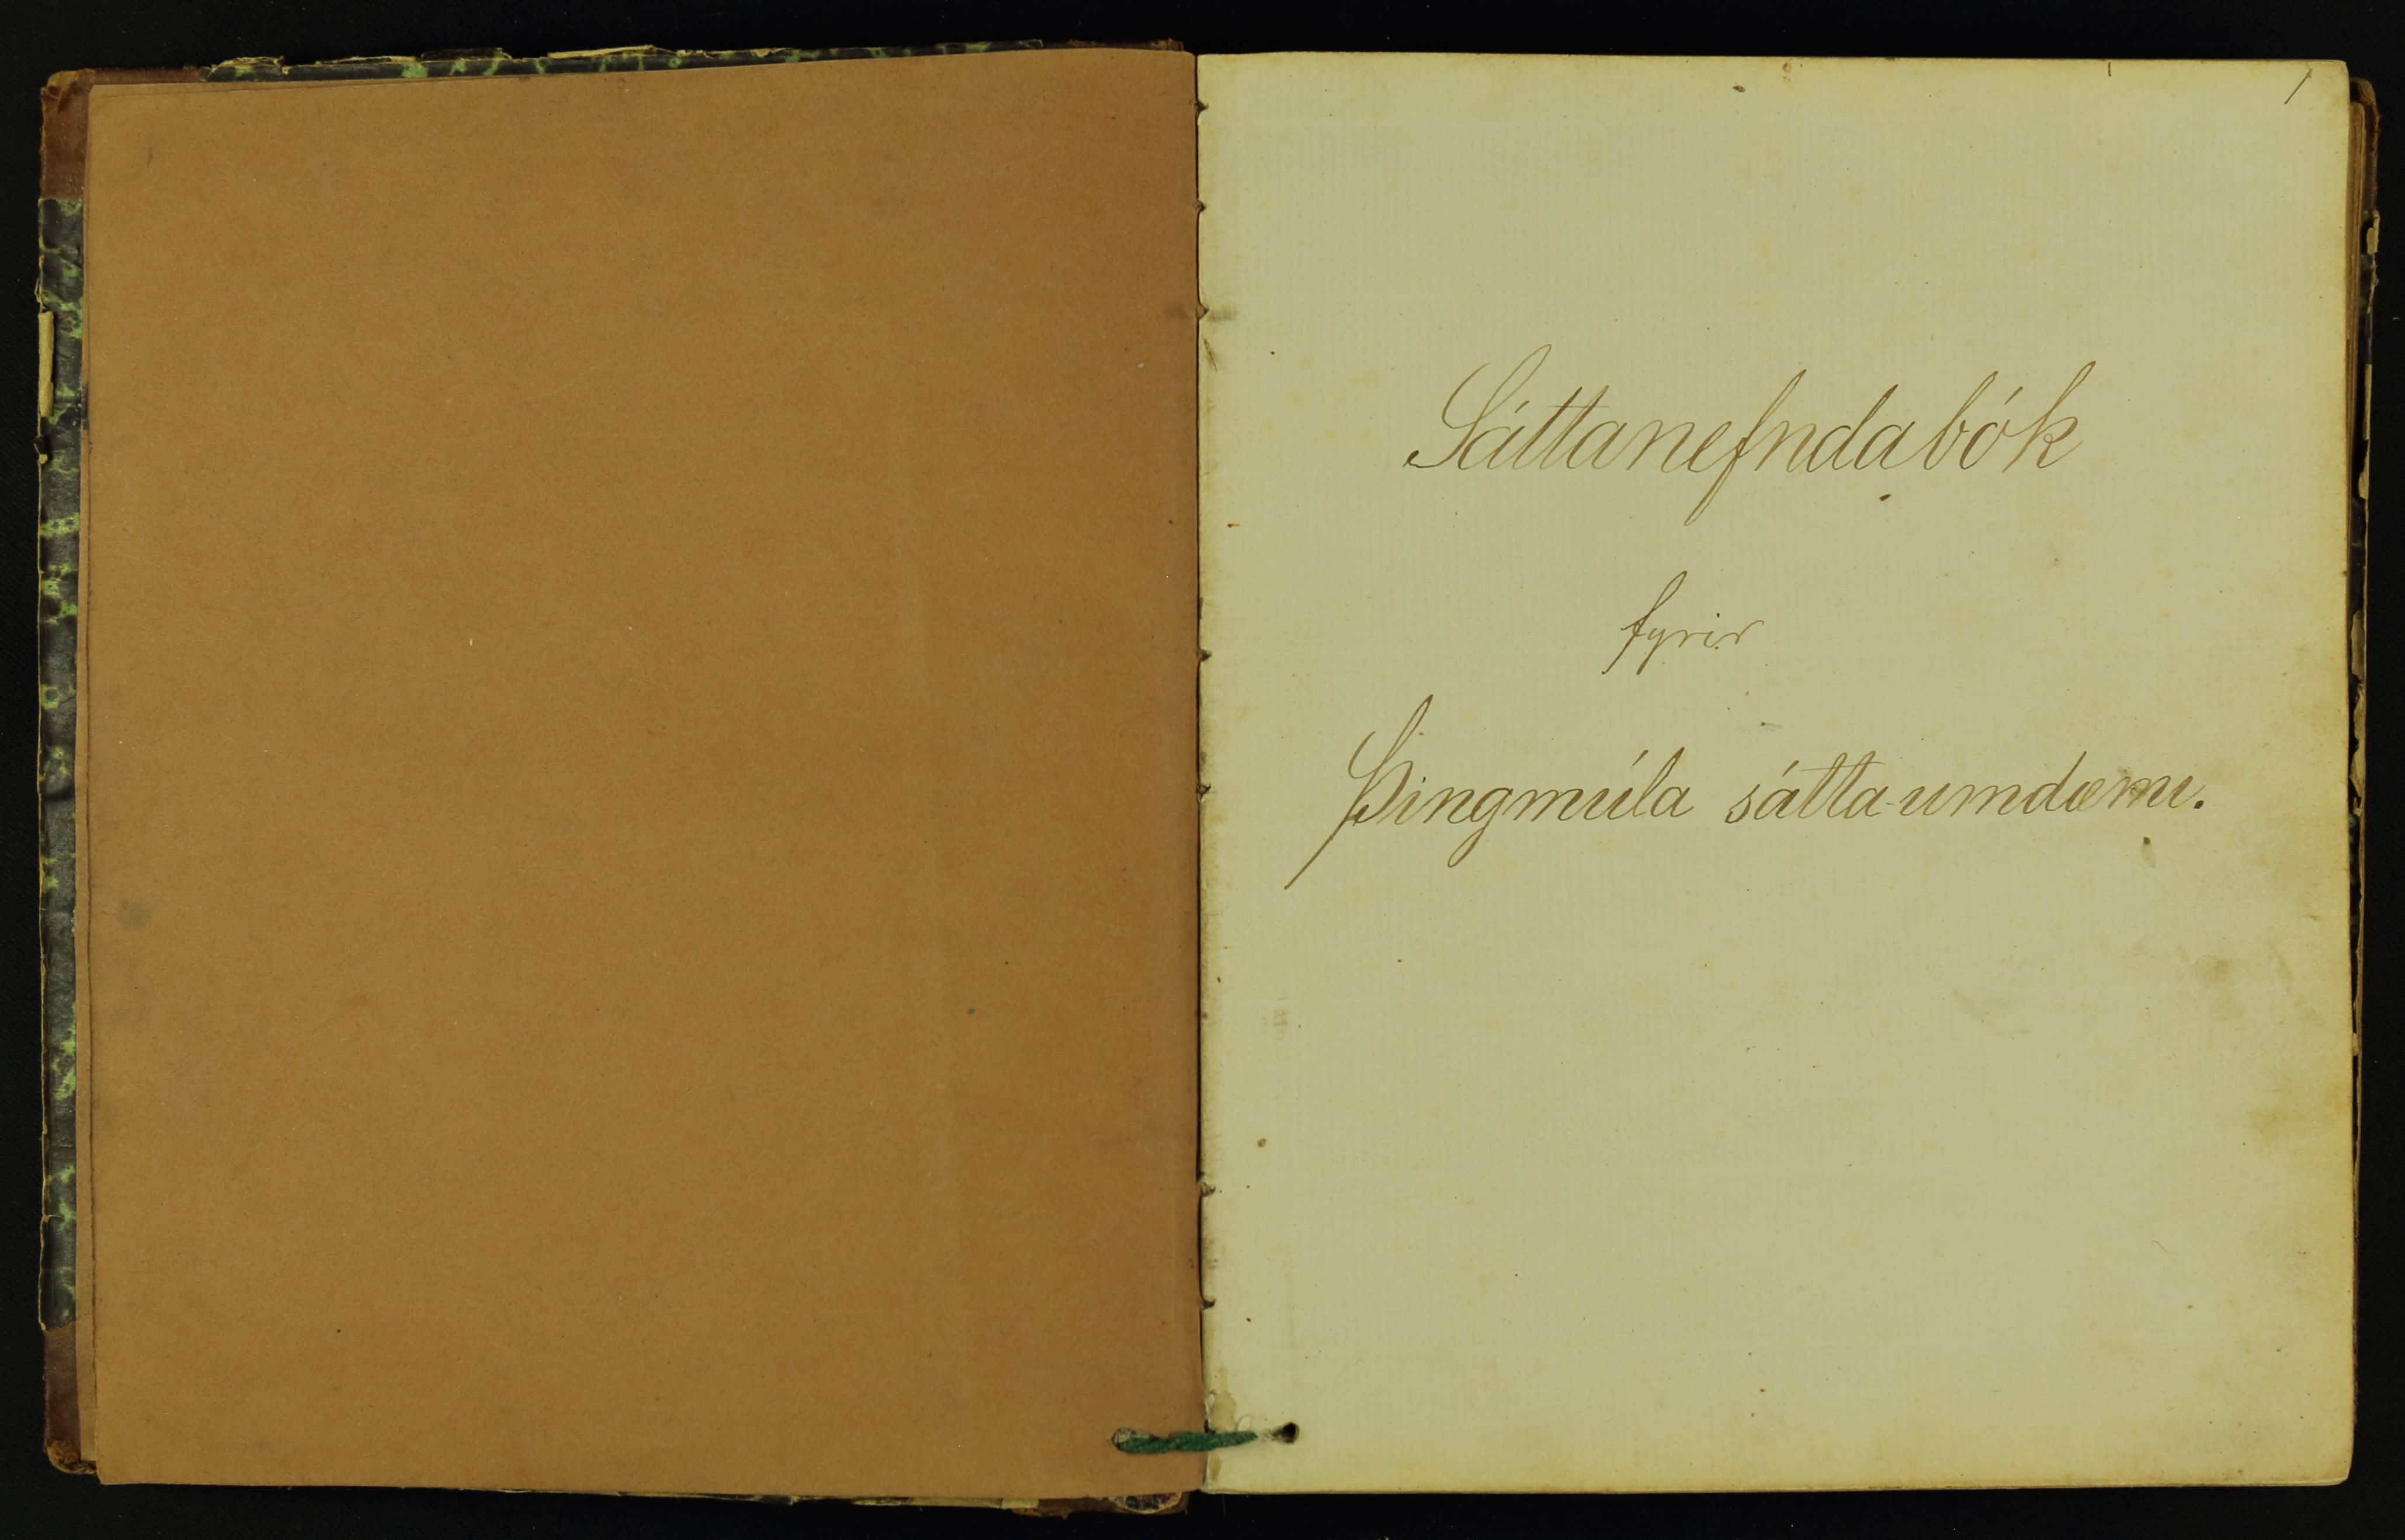 1
Sáttanefndabók
fyrir
Þingmúla sátta-umdæmi.